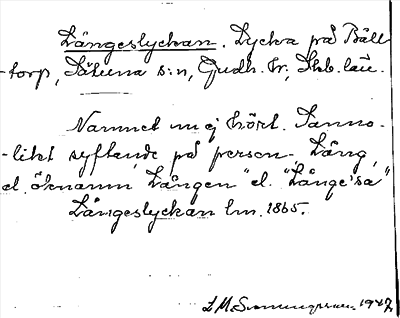 Långeslyckan. Lycka på Båll-
-torp, Sätuna s:n, Gudh. hr, Skb. län.
Namnet nu ej hört. Sanno-
-likt syftande på person, Lång,
el. öknamn "Lången" el. "Långe'sa"
Långeslyckan lm. 1865.
1947